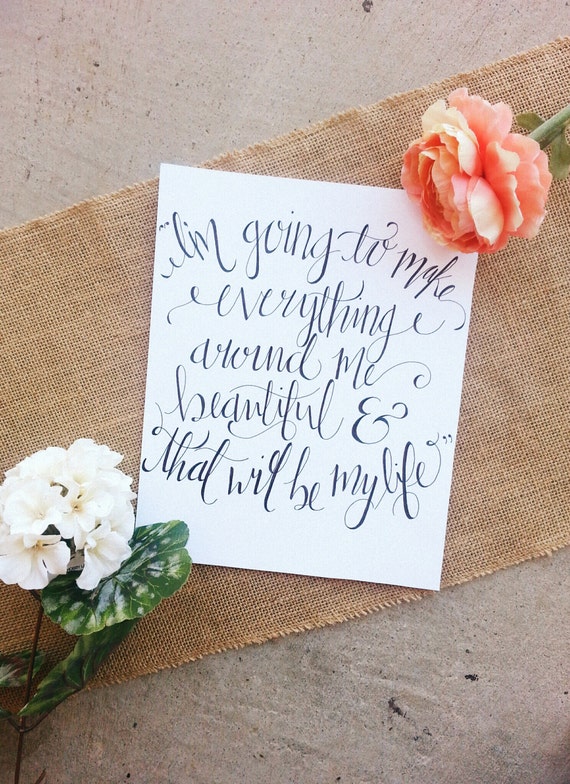 "I'm going to make
everything
around me
beautiful &
that will be my life"